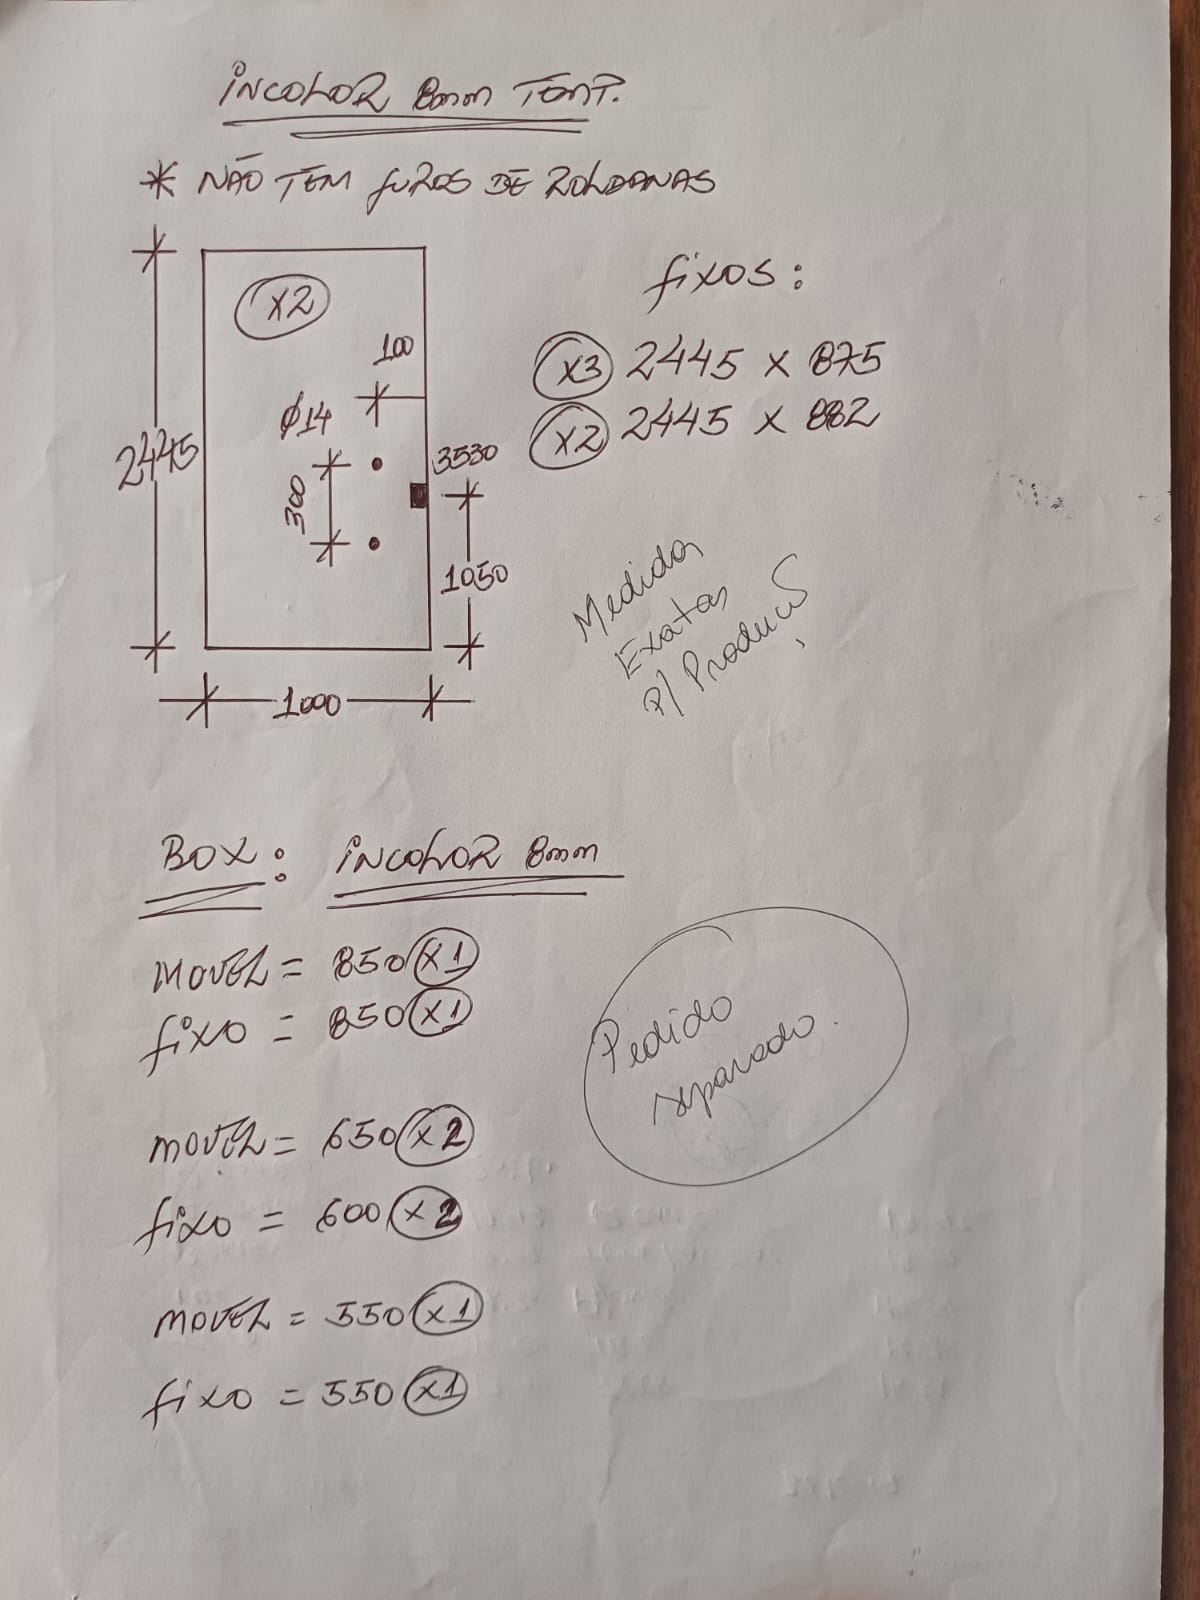 INCOLOR 8mm TEMP.
* NÃO TEM FUROS DE ROLDANAS
x2
100
Ø14
2445
300
3530
1050
1000
fixos:
x3 2445 x 875
x2 2445 x 882
Medidas
Exatas
P/ Produção
BOX: INCOLOR 8mm
MOVEL = 850 x1
fixo = 850 x1
MOVEL = 650 x2
fixo = 600 x2
MOVEL = 550 x1
fixo = 550 x1
Pedido
separado.